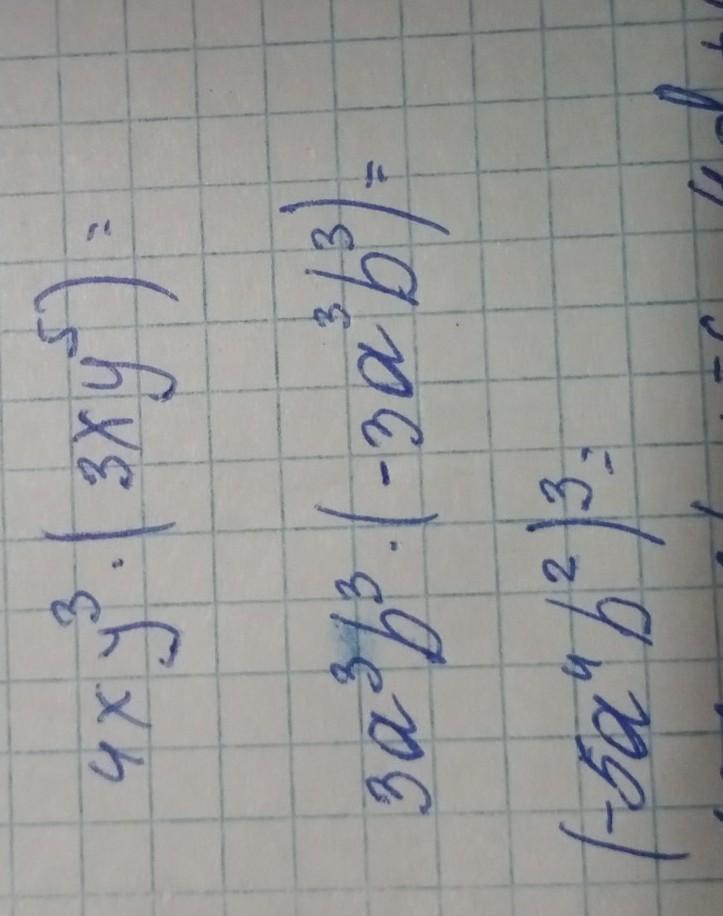 4xy³·(3xy⁵)=
3a³b³·(-3a³b³)=
(-5a⁴b²)³=